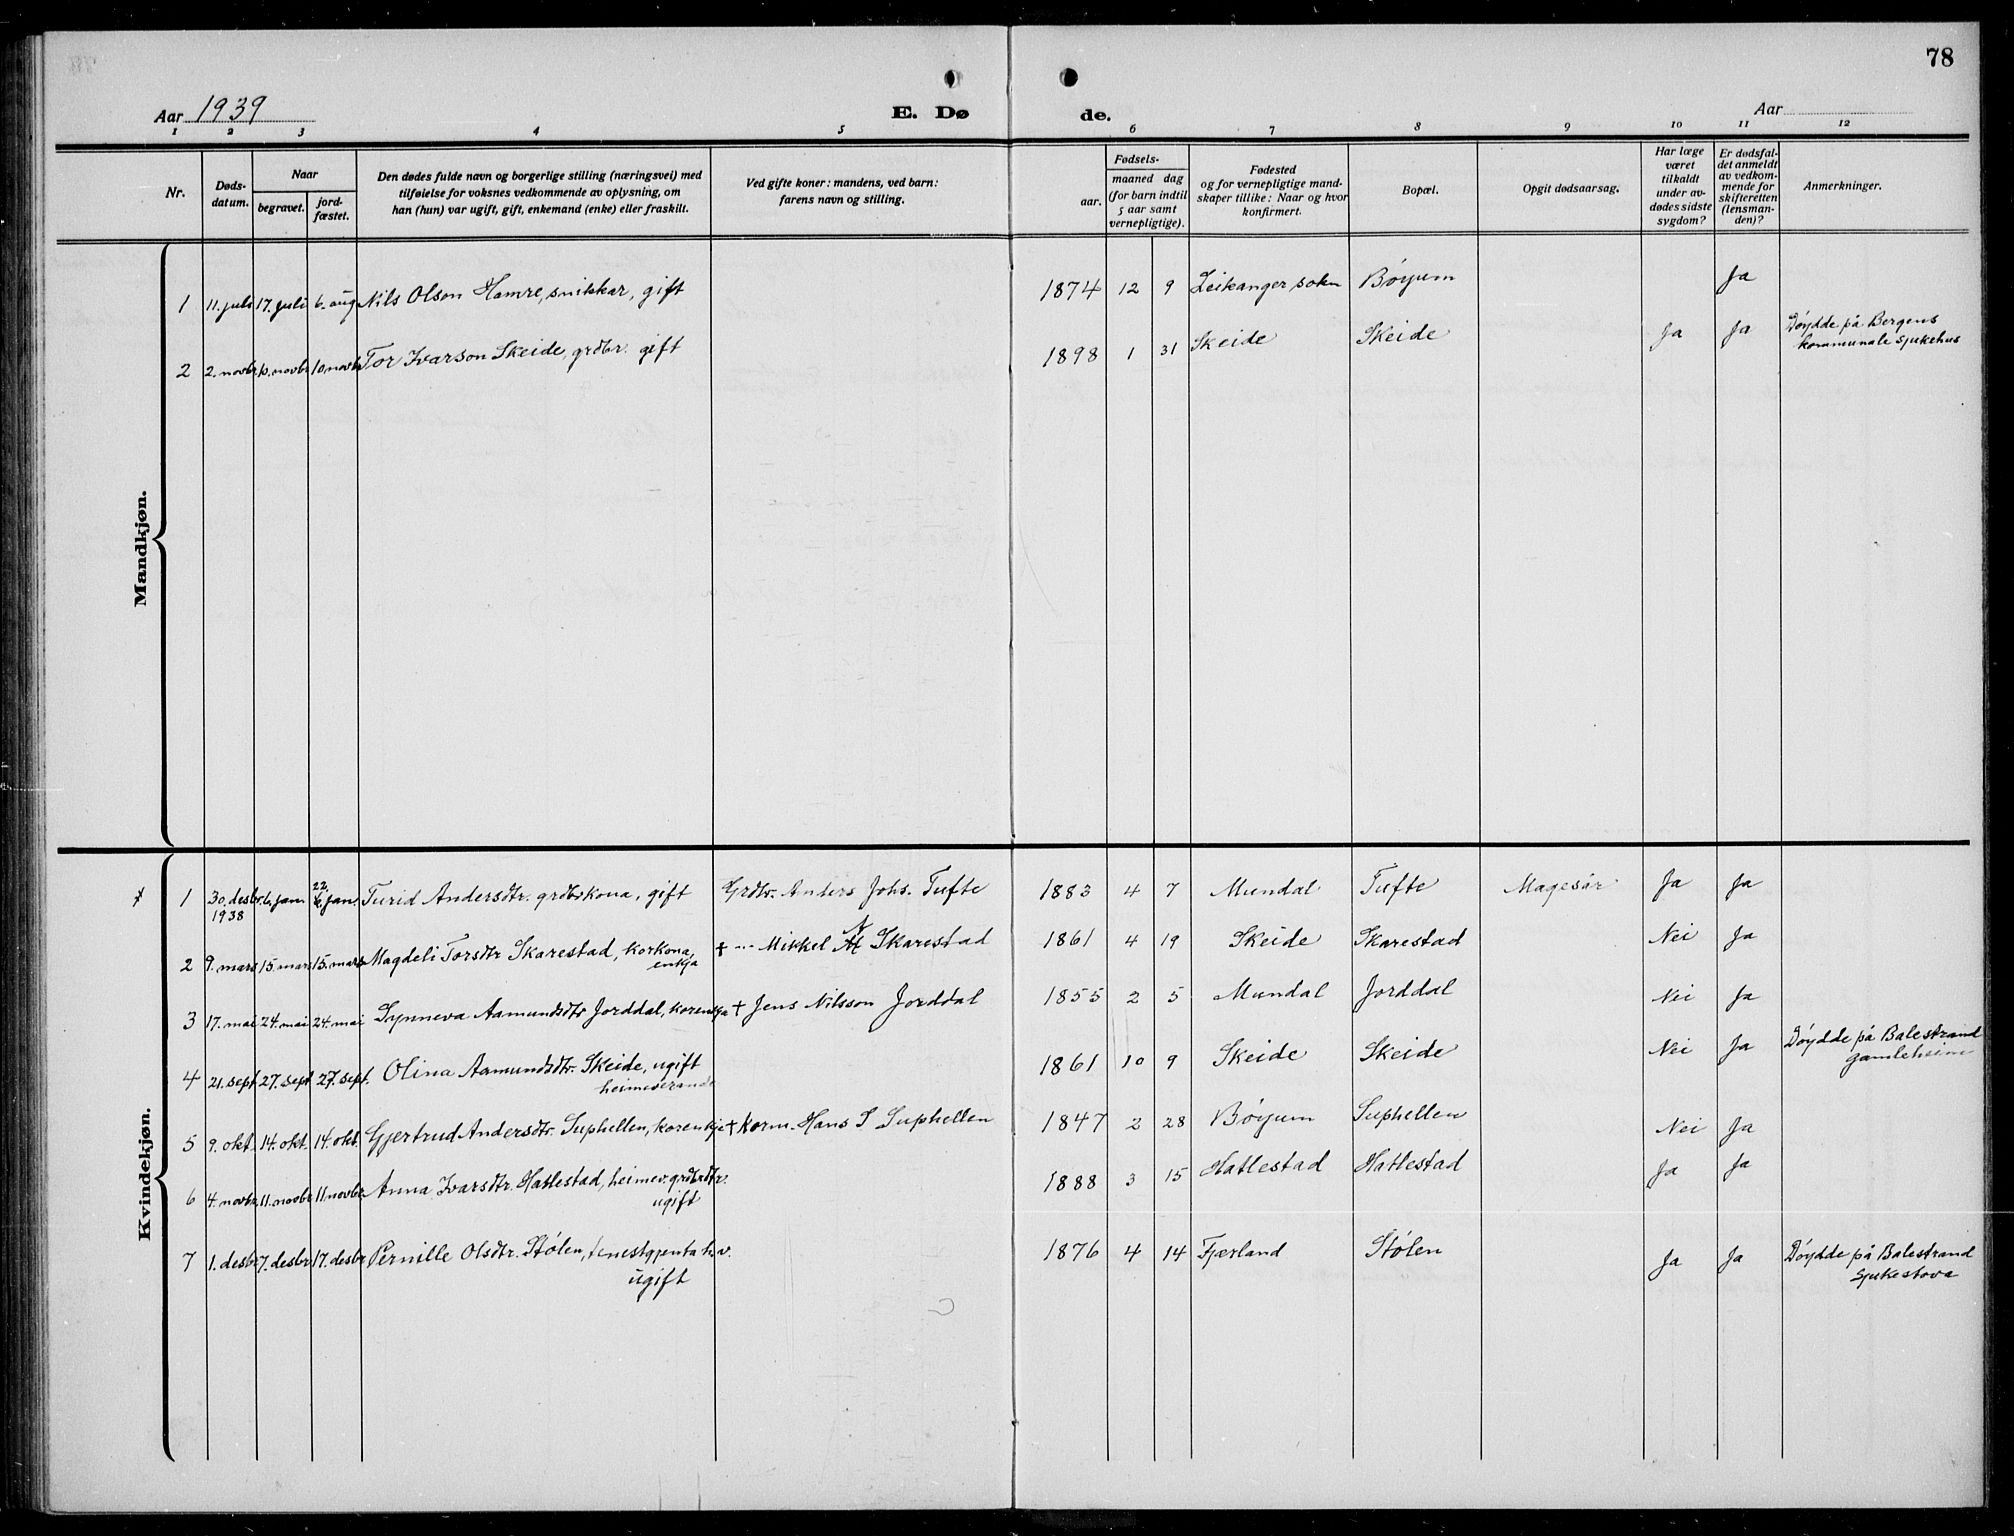 78
Aar 1939
E. Dø
de.
Aar
1 2 3 4 5 6 7 8 9 10 11 12
Nr.
Døds-
datum.
Naar
begravet.
jord-
fæstet.
Den dødes fulde navn og borgerlige stilling (næringsvei) med
tilføielse for voksnes vedkommende av oplysning, om
han (hun) var ugift, gift, enkemand (enke) eller fraskilt.
Ved gifte koner: mandens, ved barn:
farens navn og stilling.
Fødsels-
aar.
maaned dag
(for barn indtil
5 aar samt
vernepligtige).
Fødested
og for vernepligtige mand-
skaper tillike: Naar og hvor
konfirmert.
Bopæl.
Opgit dødsaarsag.
Har læge
været
tilkaldt
under av-
dødes sidste
sygdom?
Er dødsfal-
det anmeldt
av vedkom-
mende for
skifteretten
(lensman-
den)?
Anmerkninger.
Mandkjøn.
1 11. juli 17. juli 6. aug Nils Olson Hamre, snikkar, gift 1874 12 9 Leikanger sokn Bøyum Ja
2 2. novbr 10. novbr 10 novbr Tor Ivarson Skeide, grdbr. gift 1898 1 31 Skeide Skeide Ja Ja Døydde på Bergens
kommunale Sjukehus
Kvindekjøn.
1 30. desbr. 1938 6. jan 22. jan. Turid Andersdtr. grdbrkona, gift Grdbr. Anders Johs. Tufte 1883 4 7 Mundal Tufte Magesår Ja Ja
2 9. mars 15. mars 15. mars Magdeli Torsdtr Skarestad, korkona, + --- Mikkel N Skarestad 1861 4 19 Skeide Skarestad Nei Ja
enkja
3 17. mai 24. mai 24. mai Synneva Aamundsdtr Jorddal, korenkja + Jens Nilsson Jorddal 1855 2 5 Mundal Jorddal Nei Ja
4 21. sept 27. sept 27. sept. Olina Aamundsdtr. Skeide, ugift 1861 10 9 Skeide Skeide Nei Ja Døydde på Balestrand
heimeverande gamleheim
5 9. okt. 14. okt. 14. okt. Gjertrud Andersdtr. Suphellen, korenkje + Korm. Hans I Suphellen 1847 2 28 Bøyum Suphellen Nei Ja
6 4. novbr. 11. novbr 11. novbr Anna Ivarsdtr. Hatlestad, heimev. grdbrdtr. 1888 3 15 Hatlestad Hatlestad Ja Ja
ugift
7 1. desbr 7. desbr 17. desbr Pernille Olsdtr. Stølen, tenestgjenta h.v. 1876 4 14 Fjærland Stølen Ja Ja Døydde på Balestrand
ugift Sjukestova